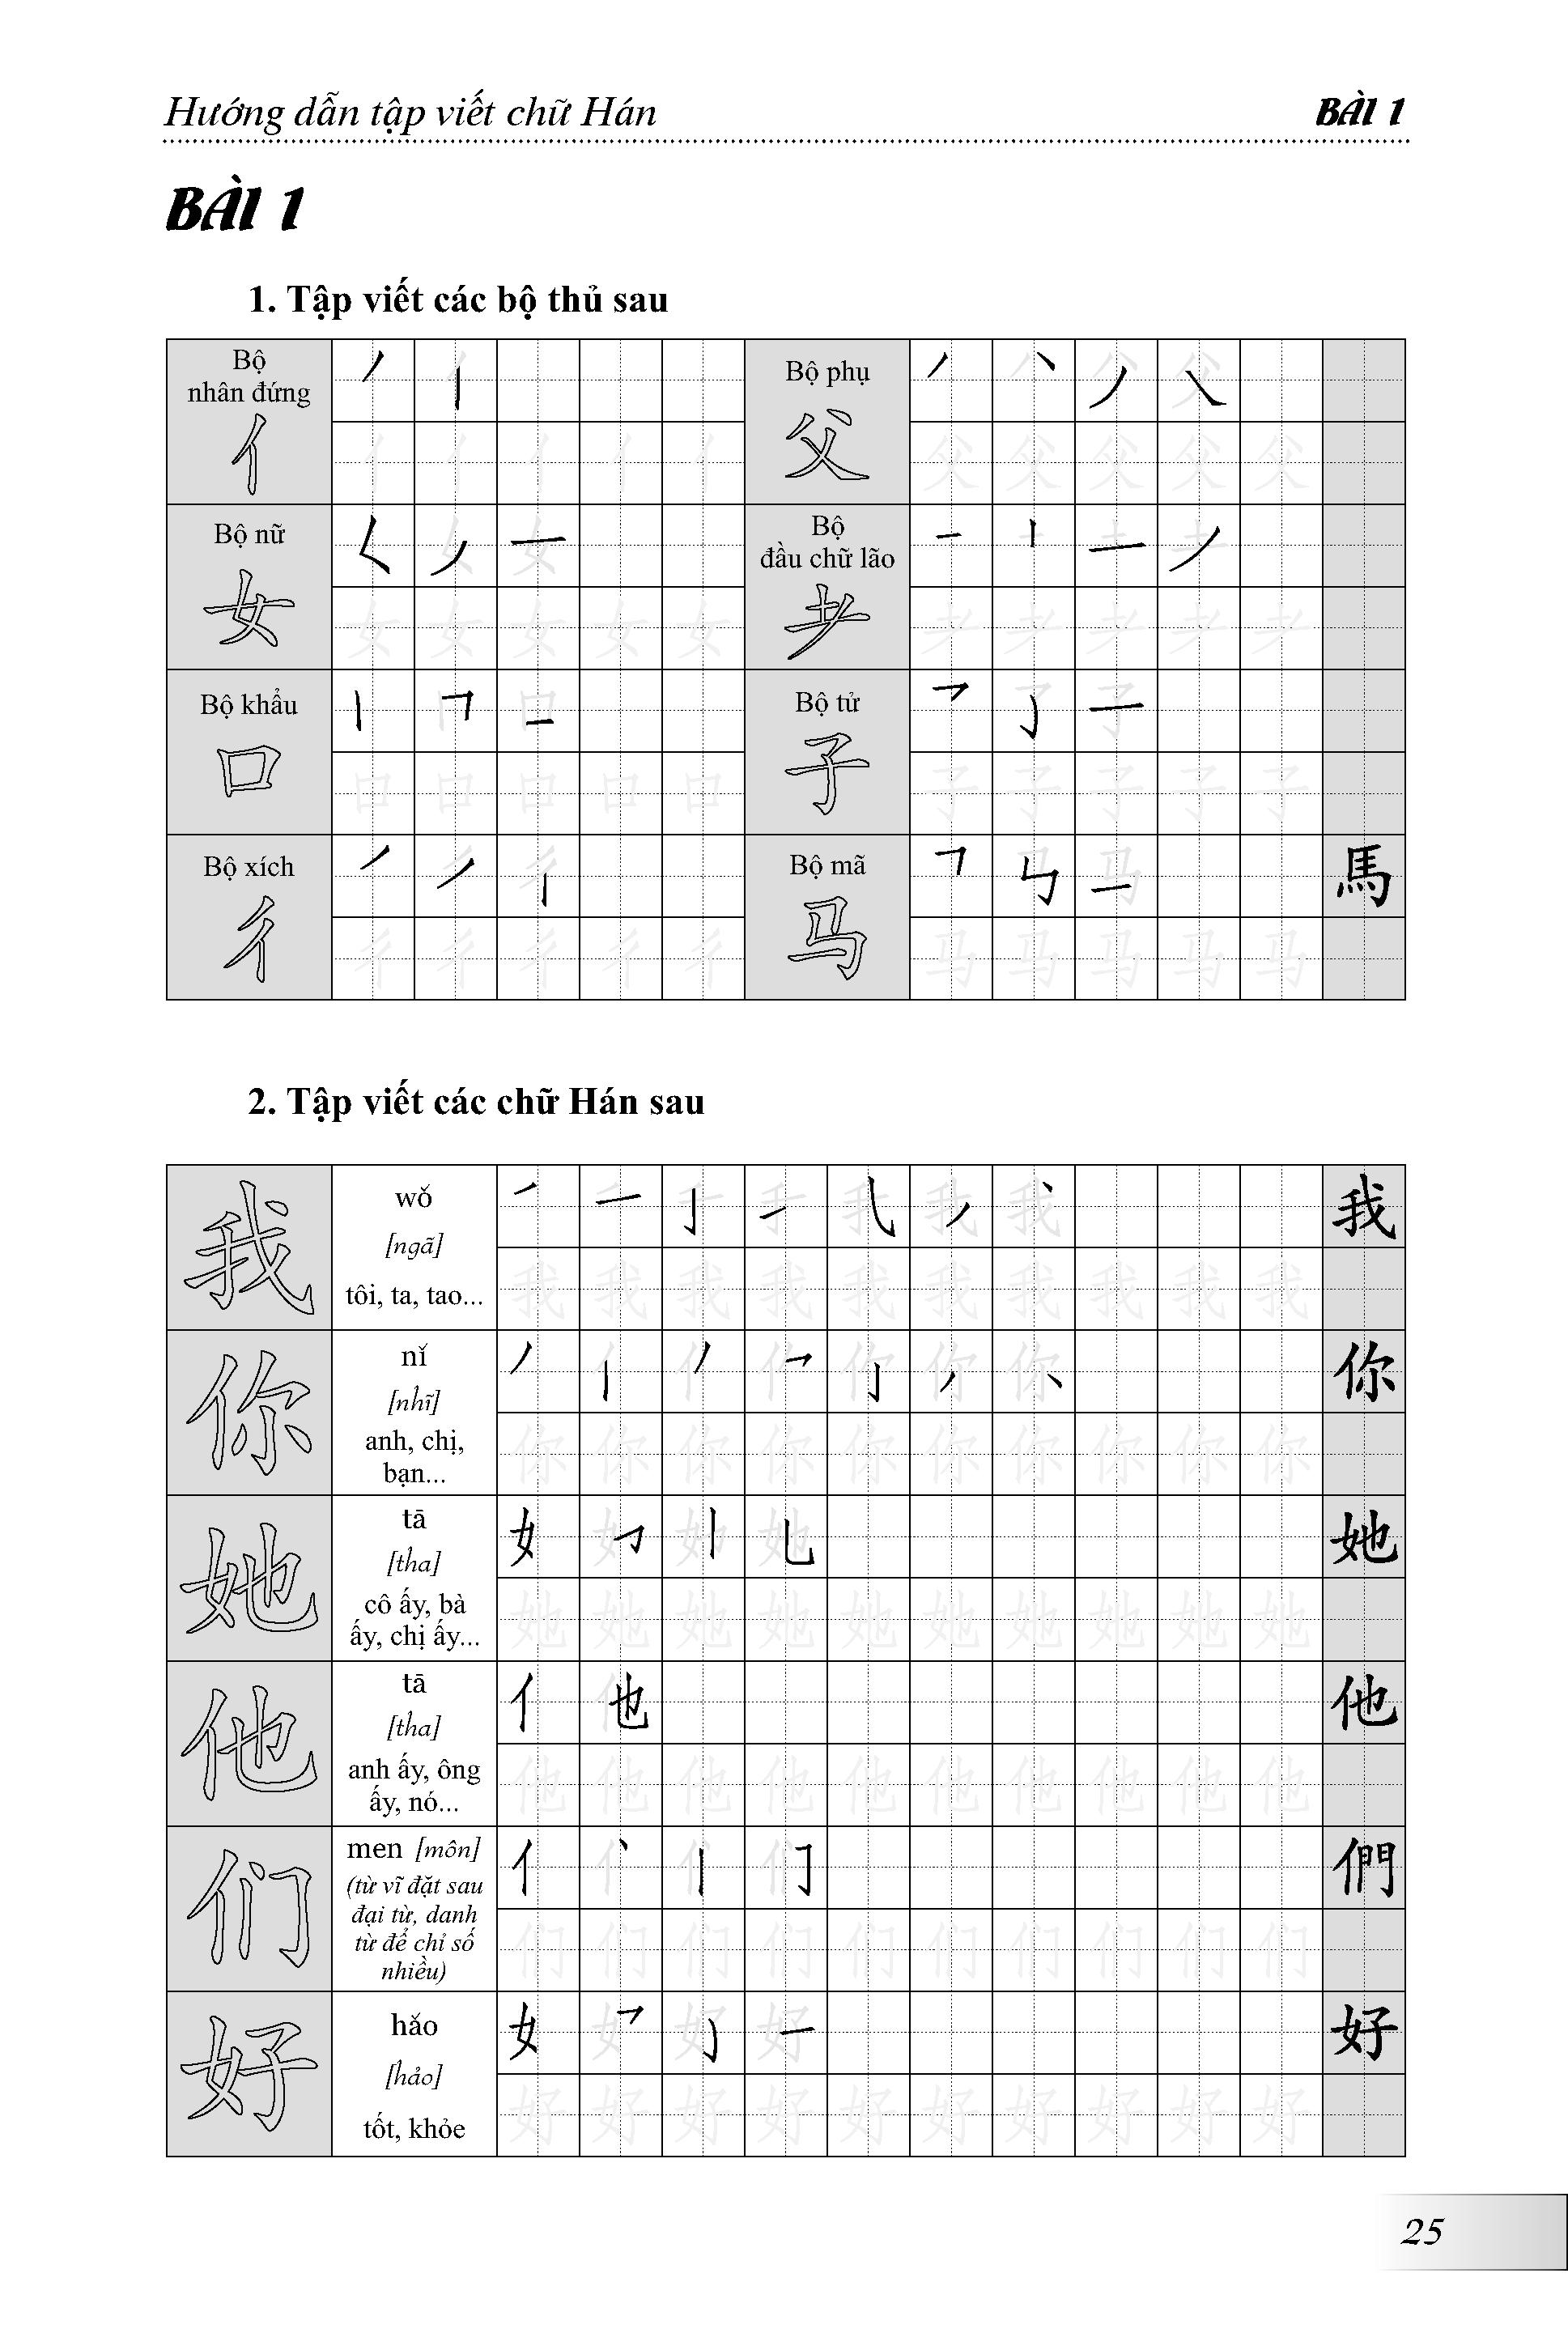 Hướng dẫn tập viết chữ Hán
BÀI 1
BÀI 1
1. Tập viết các bộ thủ sau
Bộ
nhân đứng
亻
Bộ phụ
父
Bộ nữ
女
Bộ
đầu chữ lão
耂
Bộ khẩu
口
Bộ tử
子
Bộ xích
彳
Bộ mã
马
馬
2. Tập viết các chữ Hán sau
我
wǒ
[ngã]
tôi, ta, tao...
我
你
nǐ
[nhĩ]
anh, chị,
bạn...
你
她
tā
[tha]
cô ấy, bà
ấy, chị ấy...
她
他
tā
[tha]
anh ấy, ông
ấy, nó...
他
们
men [môn]
(từ vĩ đặt sau
đại từ, danh
từ để chỉ số
nhiều)
們
好
hǎo
[hảo]
tốt, khỏe
好
25